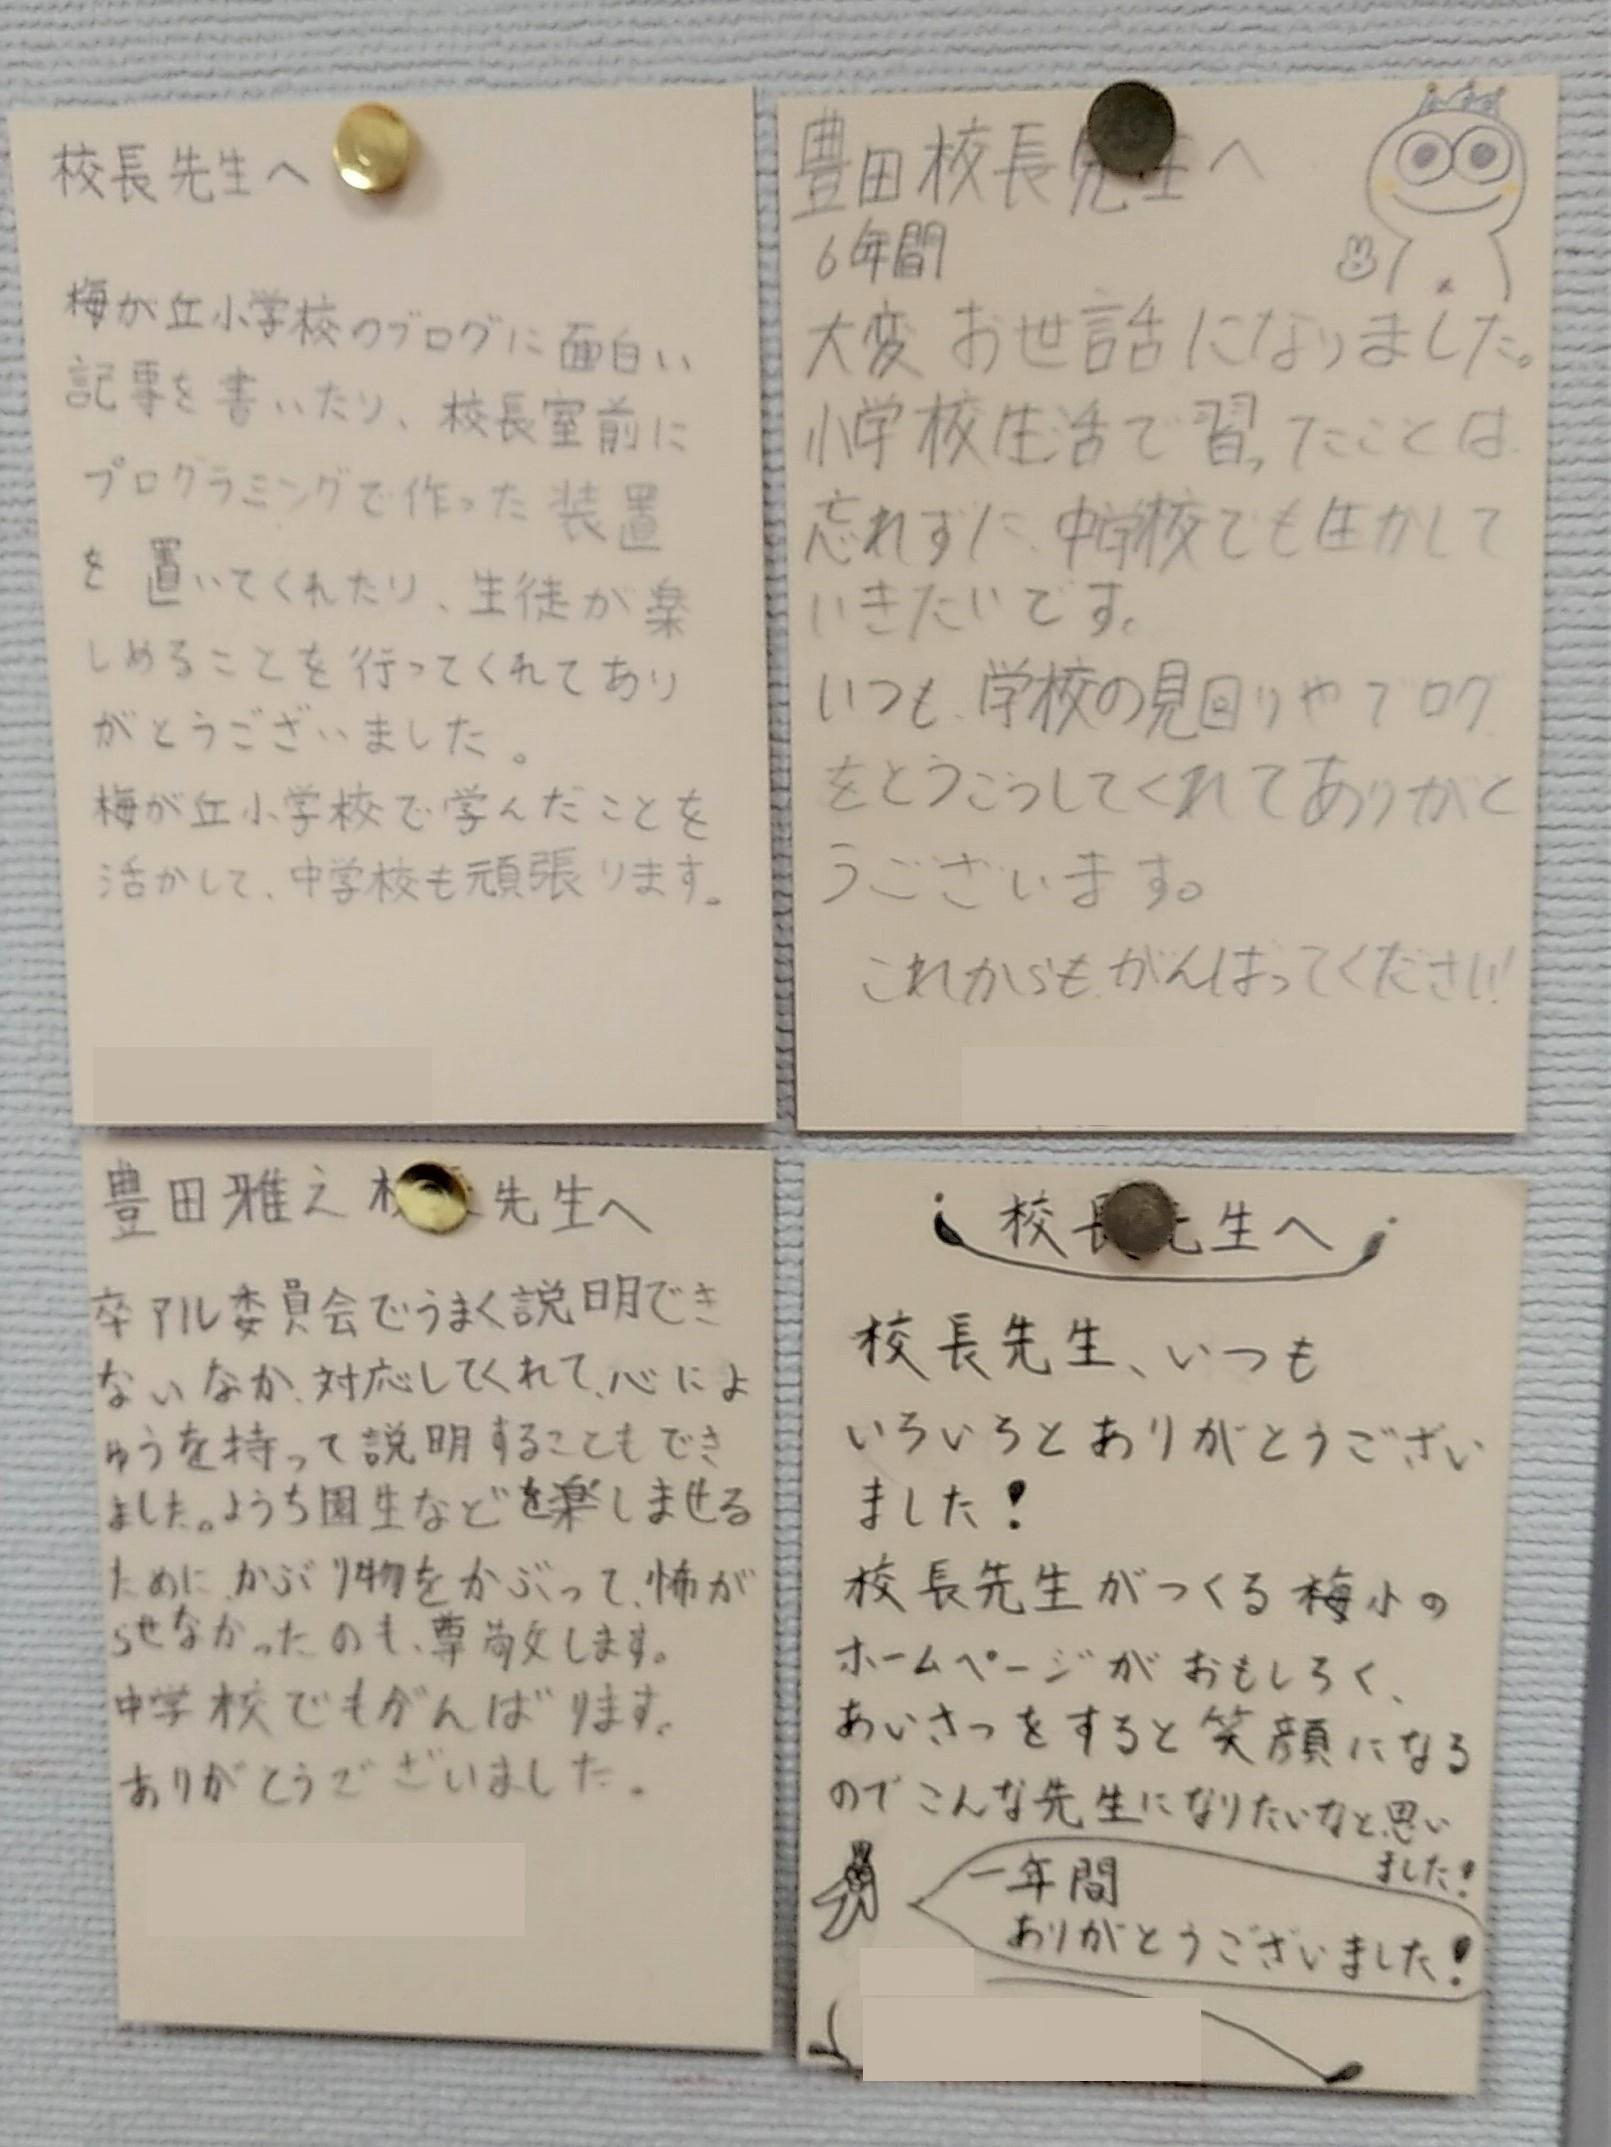 校長先生へ
梅が丘小学校のブログに面白い
記事を書いたり、校長室前に
プログラミングで作った装置
を置いてくれたり、生徒が楽
しめることを行ってくれてあり
がとうございました。
梅が丘小学校で学んだことを
活かして、中学校も頑張ります。
豊田校長先生へ
6年間
大変お世話になりました。
小学校生活で習ったことは
忘れずに、中学校でも生かして
いきたいです。
いつも、学校の見回りやブログ
をとうこうしてくれてありがと
うございます。
これからも、がんばってください!
豊田雅之校長先生へ
卒アル委員会でうまく説明でき
ないなか、対応してくれて、心によ
ゅうを持って説明することもでき
ました。ようち園生などを楽しませる
ために、かぶり物をかぶって、怖が
らせなかったのも、尊敬します。
中学校でもがんばります。
ありがとうございました。
校長先生へ
校長先生、いつも
いろいろとありがとうござい
ました!
校長先生がつくる梅小の
ホームページがおもしろく、
あいさつをすると笑顔になる
のでこんな先生になりたいなと思い
ました!
一年間
ありがとうございました!